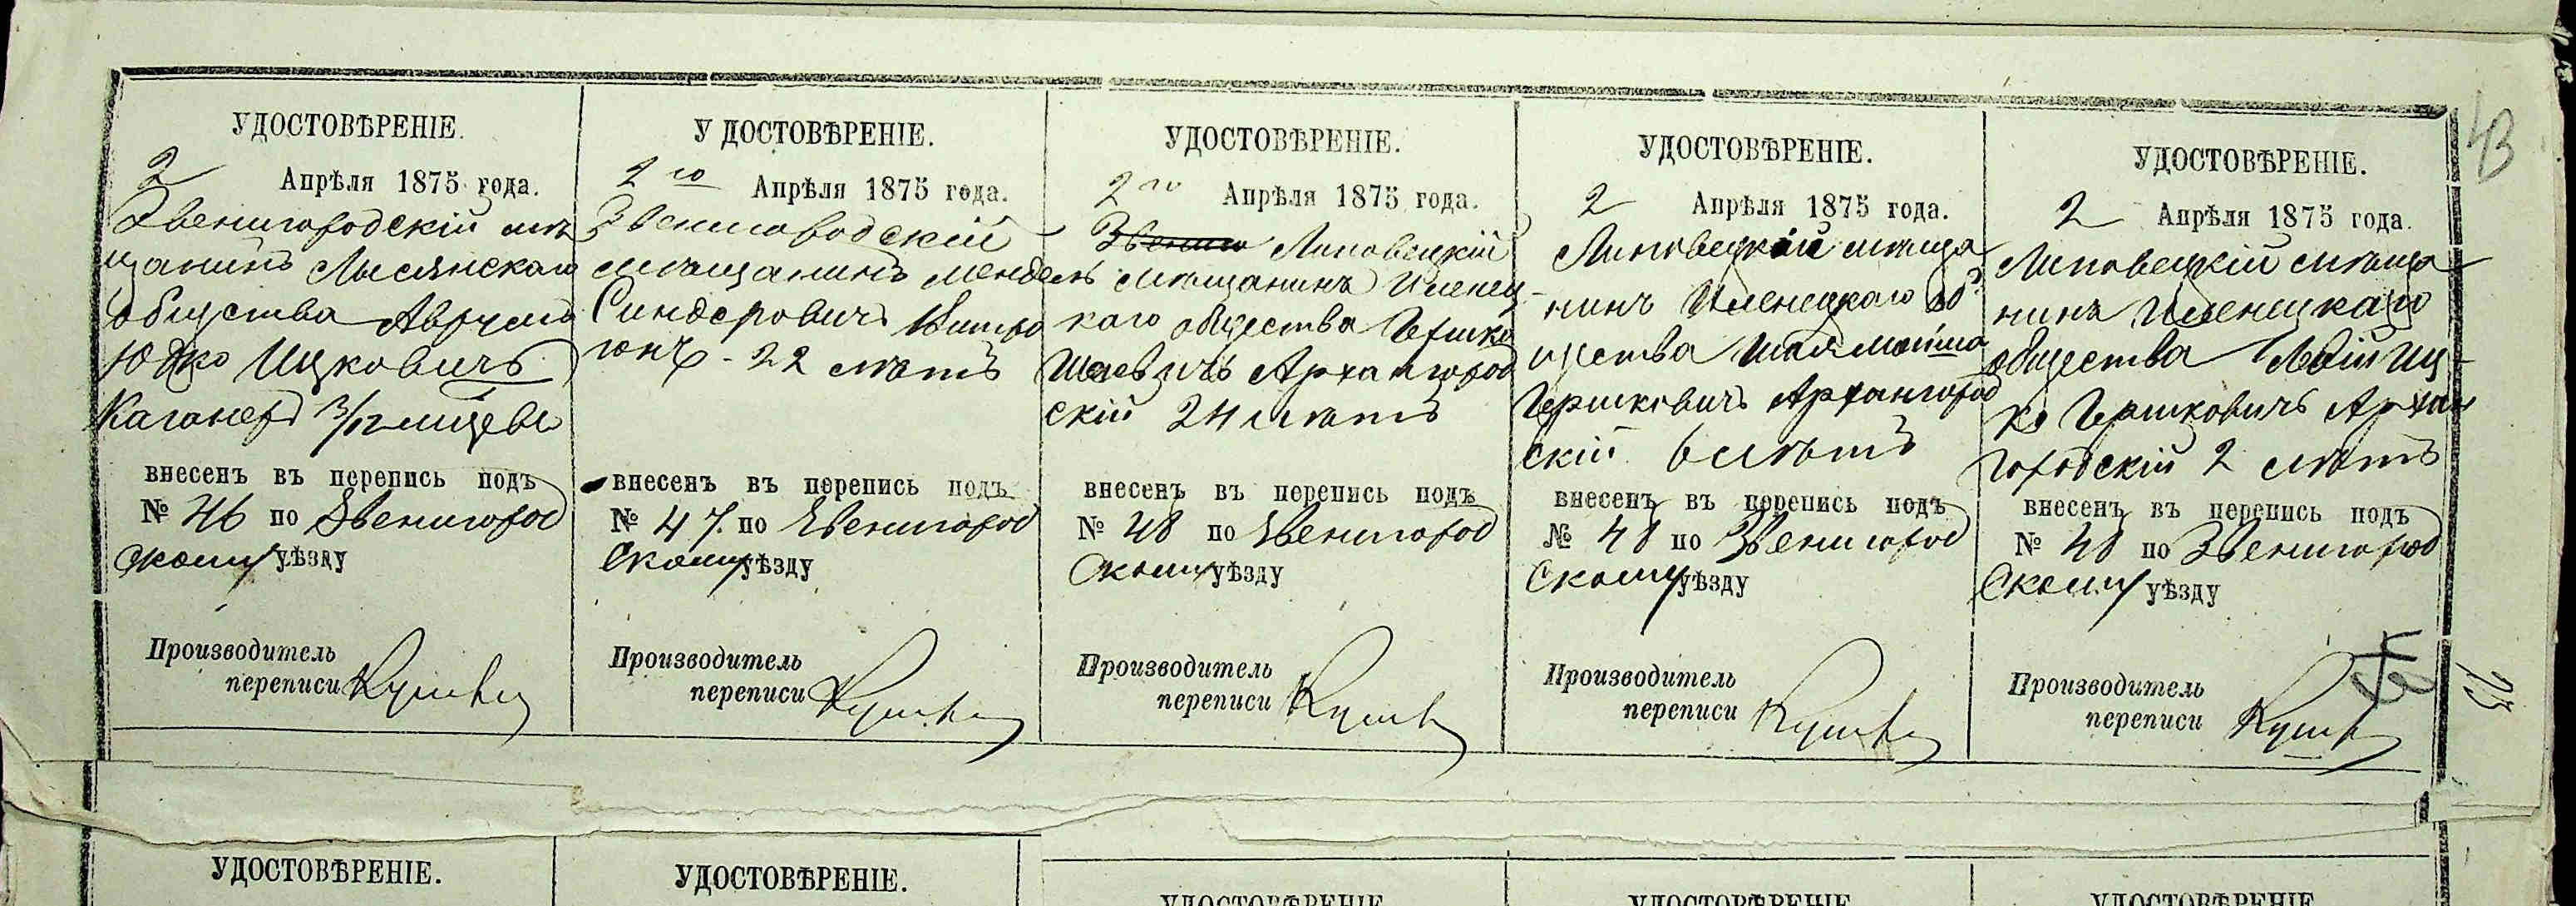 43
УДОСТОВѢРЕНІЕ.
2 Апрѣля 1875 года.
Звенигородскій мѣ
щанинъ Лысянскаго
общества Аврумъ
Юдко Ицковичъ
Каганеръ 3/12 мѣсяцевъ
внесенъ въ перепись подъ
№ 46 по Звенигород
скому уѣзду
Производитель
переписи
УДОСТОВѢРЕНІЕ.
2го Апрѣля 1875 года.
Звенигородскій
мѣщанинъ Мендель
Синдеровичъ
22 лѣтъ
внесенъ въ перепись подъ
№ 47. по Звенигород
скому уѣзду
Производитель
переписи
УДОСТОВѢРЕНІЕ.
2го Апрѣля 1875 года.
Звениго Липовецкій
мѣщанинъ Иленец-
каго общества Гершко
Шаевичъ Архангород
скій 24 лѣтъ
внесенъ въ перепись подъ
№ 48 по Звенигород
скому уѣзду
Производитель
переписи
УДОСТОВѢРЕНІЕ.
2 Апрѣля 1875 года.
Липовецкій мѣща
нинъ Иленецкаго об
щества Шая Мойша
Гершковичъ Архангород
скій 6 лѣтъ
внесенъ въ перепись подъ
№ 48 по Звенигород
скому уѣзду
Производитель
переписи
УДОСТОВѢРЕНІЕ.
2 Апрѣля 1875 года.
Липовецкій мѣща
нинъ Иленецкаго
общества Лейб Иц-
ко Гершковичъ Архан
городскій 2 лѣтъ
внесенъ въ перепись подъ
№ 48 по Звенигород
скому уѣзду
Производитель
переписи
УДОСТОВѢРЕНІЕ.
УДОСТОВѢРЕНІЕ.
УДОСТОВѢРЕНІЕ
УДОСТОВѢРЕНІЕ
УДОСТОВѢРЕНІЕ